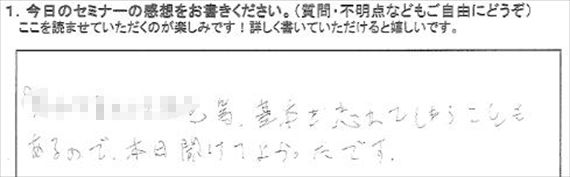 1. 今日のセミナーの感想をお書きください。(質問・不明点などもご自由にどうぞ)
ここを読ませていただくのが楽しみです!詳しく書いていただけると嬉しいです。
基本を忘れてしまうことも
あるので、本日聞けてよかったです。